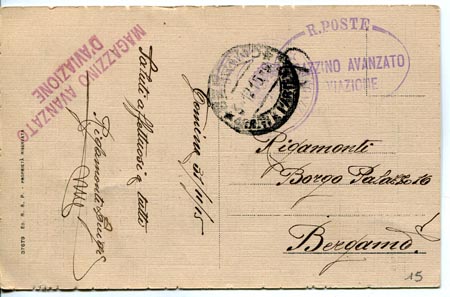 MAGAZZINO AVANZATO
D'AVIAZIONE
Saluti affettuosi a tutti
Rigamonti Luigi
R. POSTE
MAGAZZINO AVANZATO
AVIAZIONE
Rigamonti
Borgo Palazzo 16
Bergamo
15